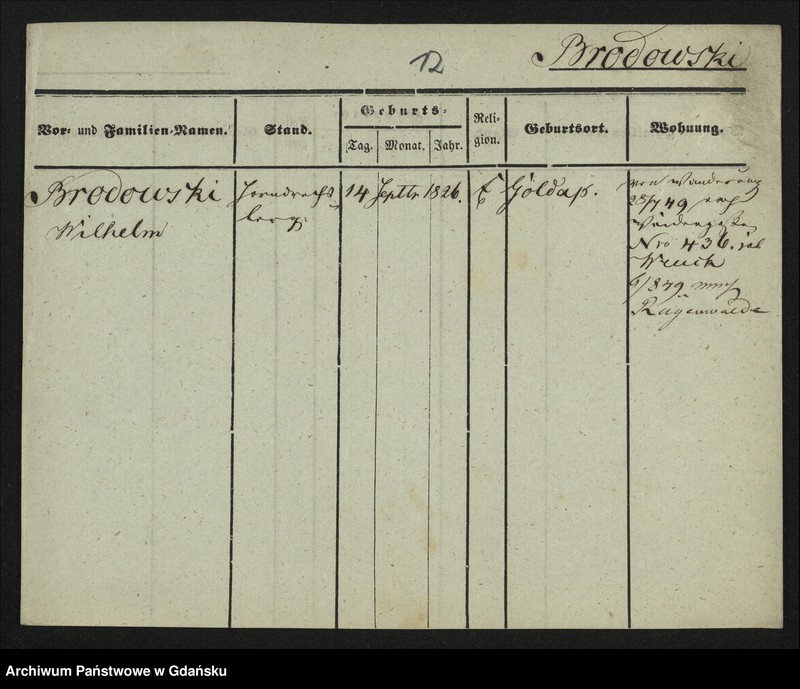 12
Brodowski
Vor- und Familien-Namen.
Stand.
Geburts-
Tag. Monat. Jahr.
Reli-
gion.
Geburtsort.
Wohnung.
Brodowski
Wilhelm
berg:
14 Septbr 1826.
Goldap.
28/7 49
Nro 436.
6/8 79
Rügenwalde
Archiwum Państwowe w Gdańsku